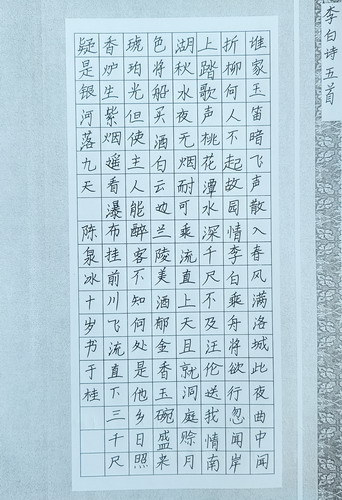 李白诗五首
谁家玉笛暗飞声散入春风满洛城此夜曲中闻
折柳何人不起故园情李白乘舟将欲行忽闻岸
上踏歌声桃花潭水深千尺不及汪伦送我情南
湖秋水夜无烟耐可乘流直上天且就洞庭赊月
色将船买酒白云边兰陵美酒郁金香玉碗盛来
琥珀光但使主人能醉客不知何处是他乡日照
香炉生紫烟遥看瀑布挂前川飞流直下三千尺
疑是银河落九天 陈泉冰十岁书于桂